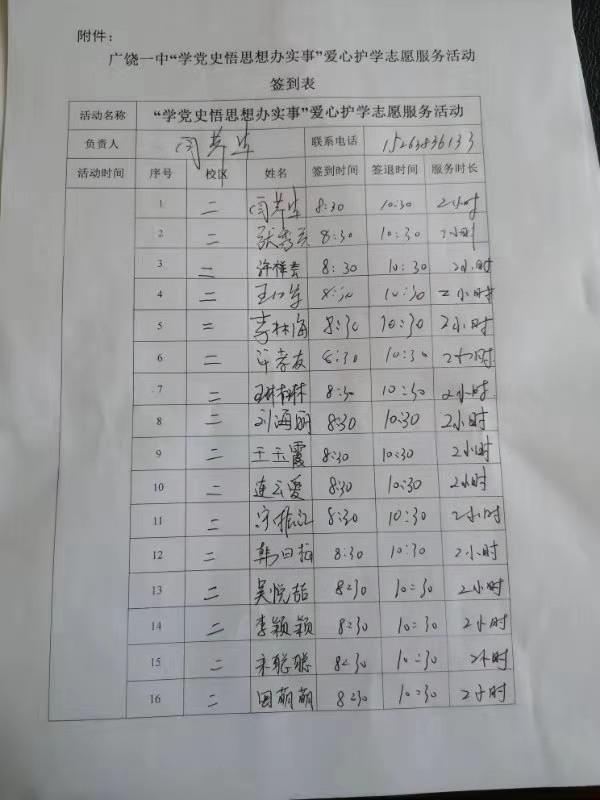 附件：
广饶一中“学党史悟思想办实事”爱心护学志愿服务活动
签到表
活动名称 “学党史悟思想办实事”爱心护学志愿服务活动
负责人 联系电话 15263836133
活动时间 序号 校区 姓名 签到时间 签退时间 服务时长
1 二 8:30 10:30 2小时
2 二 8:30 10:30 2小时
3 二 许祥云 8:30 10:30 2小时
4 二 8:30 10:30 2小时
5 二 李林海 8:30 10:30 2小时
6 二 孝友 8:30 10:30 2小时
7 二 王琳琳 8:30 10:30 2小时
8 二 刘海丽 8:30 10:30 2小时
9 二 王玉霞 8:30 10:30 2小时
10 二 连云爱 8:30 10:30 2小时
11 二 8:30 10:30 2小时
12 二 韩 8:30 10:30 2小时
13 二 吴悦喆 8:30 10:30 2小时
14 二 李颖颖 8:30 10:30 2小时
15 二 宋聪聪 8:30 10:30 2小时
16 二 田萌萌 8:30 10:30 2小时